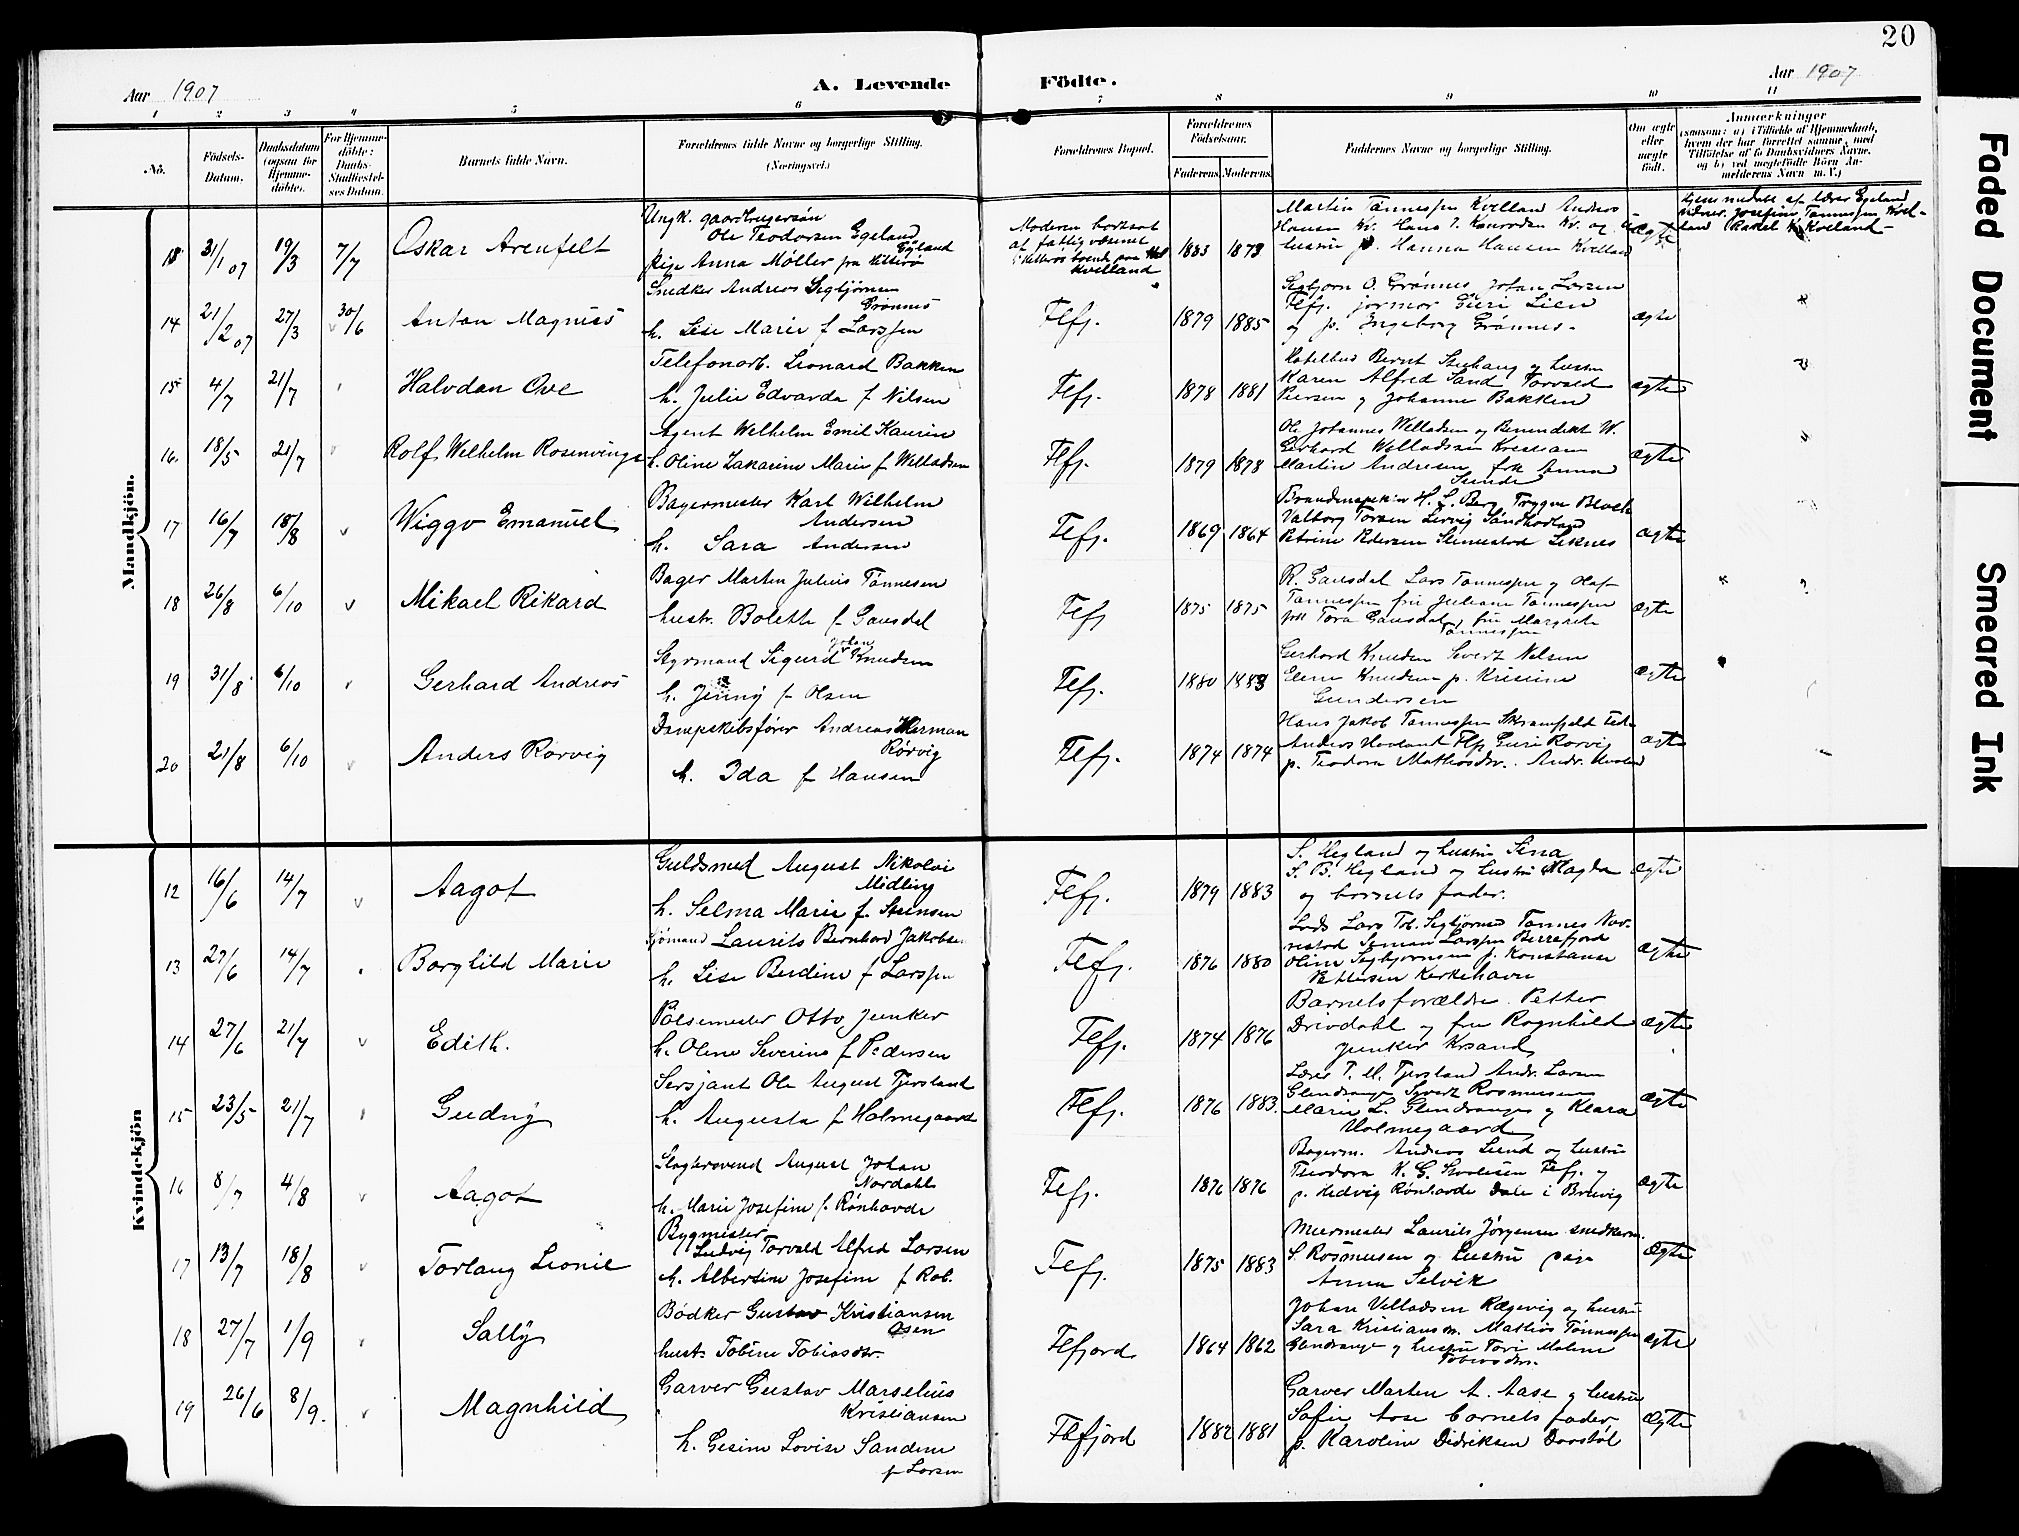 20
Aar 1907
A. Levende
Födte.
Aar 1907
1 2 3 4 5 6 7 8 9 10 11
No.
Födsels-Datum.
Daabsdatum (ogsaa for Hjemmedöbte).
For Hjemmedöbte: Daabs-Stadfæstelses Datum.
Barnets fulde Navn.
Forældrenes fulde Navne og borgerlige Stilling. (Næringsvei.)
Forældrenes Bopæl.
Forældrenes Födselsaar.
Faderens. Moderens.
Faddernes Navne og borgerlige Stilling.
Om ægte eller uægte födt.
Anmærkninger
(saasom: a) i Tilfælde af Hjemmedaab, hvem der har forrettet samme, med Tilföielse af to Daabsvidners Navne, og b) ved uægtefödte Börn Anmelderens Navn m. V.)
Mandkjön.
18 31/1 07 19/3 7/7 Oskar Arenfelt
Ungk. gaardbrugersøn
Ole Teodorsen Egeland
pige Anna Møller fra Hitterø
Moderen bortsat
af fattigvæsenet
Kvelland
1883 1873
Martin Tønnessen Kvelland Andreas
Hansen Kv. Hans T. Konradsen Kv. og
hustru p. Hanna Hansen Kvelland
14 21/2 07 27/3 30/6 Anton Magnus
Snedker Andreas Segbjørnsen
Grønnes
h. Lise Marie f Larssen
Flefj. 1879 1885
Segbjørn O. Grønnes, Johan Larsen
Flefj. jormor Guri Lien
og p. Ingeborg Grønnes.
ægte
15 4/7 21/7 Halvdan Ove
Telefonarb. Leonard Bakken
h. Julie Edvarda f Nilsen
Flefj. 1878 1881
Karen Alfred Sand Torvald
Piersen og Johanne Bakken
ægte
16. 18/5 21/7 Rolf Welhelm Rosenvinge
Agent Welhelm Emil Kaurin
h. Oline Zakarine Marie f Welladsen
Flefj. 1879 1878
Ole Johannes Welladsen og Benendikt W.
Gerhard Welladsen Kristiane
Martin Andresen frk Anna
Sunde
ægte
17 16/7 18/8 Wiggo Emanuel
Bagermester Karl Wilhelm
Andersen
h. Sara Andersen
Flefj. 1869 1864
H. L. Berg Trygve Bloch
Valborg Torsen
Petrine Pedersen
ægte
18 26/8 6/10 Mikael Rikard
Bager Marten Julius Tönnesen
hustr. Bolette f Gausdal
Flefj 1875 1875
R. Gausdal Lars Tönnessen og Olaf
Tönnessen fru Juliane Tönnessen
frk Tora Gausdal, fru Margrete
Tönnessen
ægte
19 31/8 6/10 Gerhard Andreas
Styrmand Sigurd Johan Knudsen
h. Jenny f Olsen
Flefj. 1880 1883
Gerhard Knudsen Severt Nilsen
Elene Knudsen p. Kristine
Gundersen
ægte
20 21/8 6/10 Anders Rørvig
Dampskibsfører Andreas Herman
Rørvig
h. Ida f Hansen
Flefj. 1874 1874
Hans Jakob Tönnessen
Anders Hovland Flfj Guri Rørvig
p. Teodora Mathiasdtr. Andr. Hovland
ægte
Kvindekjön
12 16/6 14/7 Aagot
Guldsmed August Nikolai
Midling
h. Selma Marie f. Steensen
Flefj. 1879 1883
S. Hegland og hustru Sina
S. B. Hegland og hustru Magda
og barnets fader.
ægte
13 27/6 14/7 Borghild Marie
Sjömand Laurits Bernhard Jakobsen
h. Lise Berdine f Larssen
Flefj. 1876 1880
Lods Lars Tob. Segbjörnsen Tönnes
Larssen Berrefjord
Oline Segbjörnsen p. Konstanse
Pettersen Kerkehavn
ægte
14 27/6 21/7 Edith.
Pölsemester Otto Junker
h. Oline Severine f Pedersen
Flefj. 1874 1876
Barnets forældre. Petter
Drivdahl og fru Ragnhild
Junker Krsand
ægte
15 23/5 21/7 Gudny
Sersjant Ole August Tjersland
h. Augusta f Holmegaard
Flefj. 1876 1883.
Lærer T. M. Tjersland Andr. Larsen
Glendrange Syvert Rasmussen
Marie L. Glendrange og Klara
Holmegaard
ægte
16 8/7 4/8 Aagot
August Johan
Nordahl
h. Marie Josefine f. Rønhovde
Flefj. 1876 1876
Bagerm. Andreas Lund og hustru
Teodora K. G. Flefj. og
p. Hedvig Rønhovde Dale i
ægte
17 13/7 18/8 Torlaug Leonie
Bygmester
Ludvig Torvald Alfred Larsen
h. Albertine Josefine f Rob.
Flefj. 1875 1883
Murmester Laurits Jörgensen snedkerm.
S. Rasmussen og hustru pige
Anna Selvik
ægte
18 27/7 1/9 Sally
Bødker Gustav Kristiansen
Osen
hust. Tobine Tobiasdtr.
Flefjord 1864 1862
Johan Velladsen Rægevig og hustru
Sara Kristiansen. Mathias Tönnessen
Glendrange og hustru Tore Malene
Tobiasdtr.
ægte
19 26/6 8/9. Magnhild
Garver Gustav Marselius
Kristiansen
h. Gesine Lovise Sandene
f Larsen
Flefjord 1882 1881
Garver Marten A. Aase og hustru
Sofie Aase barnets fader
p. Karoline Didriksen Dorstøl
ægte
Faded Document
Smeared Ink